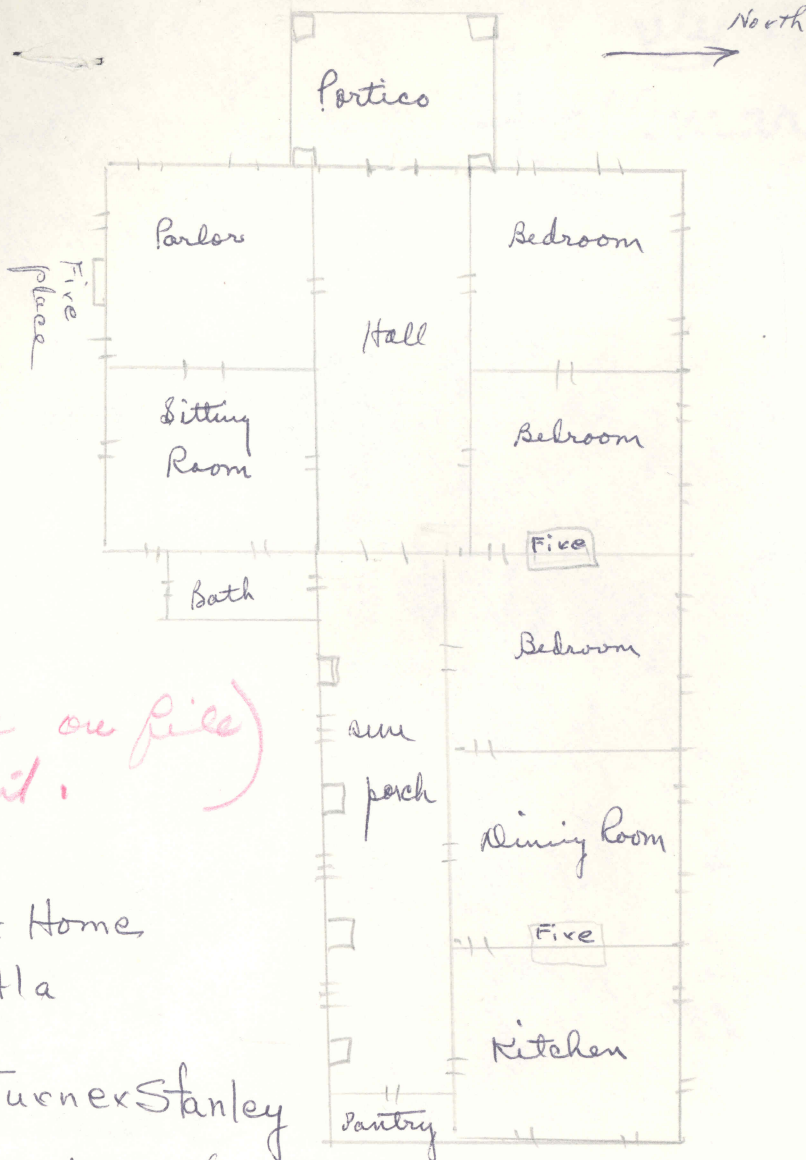 North
Portico
Parlor
Bedroom
Fire
place
Hall
Sitting
Room
Bedroom
Fire
Bath
Bedroom
on file)
sun
porch
Dining Room
Home
Fire
Kitchen
Turner Stanley
Pantry